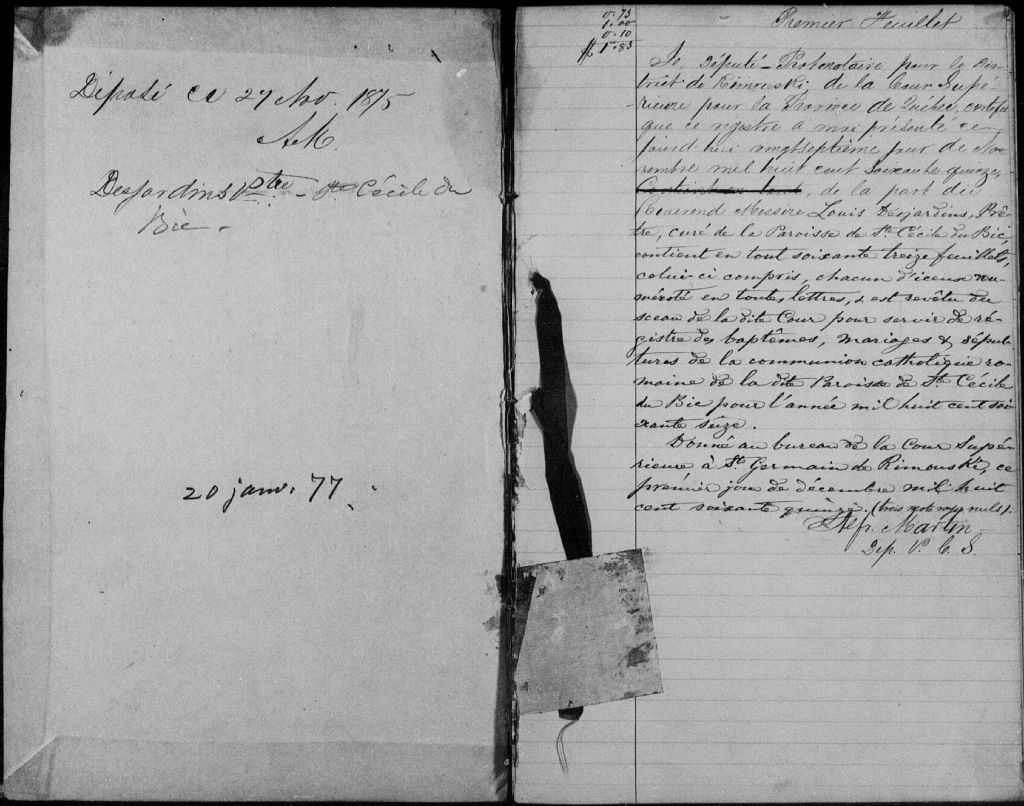 Déposé ce 27 Nov. 1875
A.M.
Desjardins Ptre – Ste Cécile du
Bic –
20 janv. 77
0.73
1.00
0.10
$1.83
Premier Feuillet
Je, Député-Protonotaire pour le Dis-
trict de Rimouski, de la Cour Supé-
rieure pour la Province de Québec, certifie
que ce registre à moi présenté ce
jourd'hui vingtseptième jour de No-
vembre mil huit cent soixante quinze,
de la part du
Révérend Messire Louis Desjardins, Prê-
tre, curé de la Paroisse de Ste Cécile du Bic,
contient en tout soixante treize feuillets,
celui-ci compris, chacun d'iceux nu-
méroté en toutes lettres, & est revêtu du
sceau de la dite Cour pour servir de ré-
gistre des baptêmes, mariages & sépul-
tures de la communion catholique ro-
maine de la dite Paroisse de Ste Cécile
du Bic pour l'année mil huit cent soi-
xante seize.
Donné au bureau de la Cour Supé-
rieure à St Germain de Rimouski, ce
premier jour de décembre mil huit
cent soixante quinze. (trois mots rayés nuls).
Martin
Dép. P. C. S.